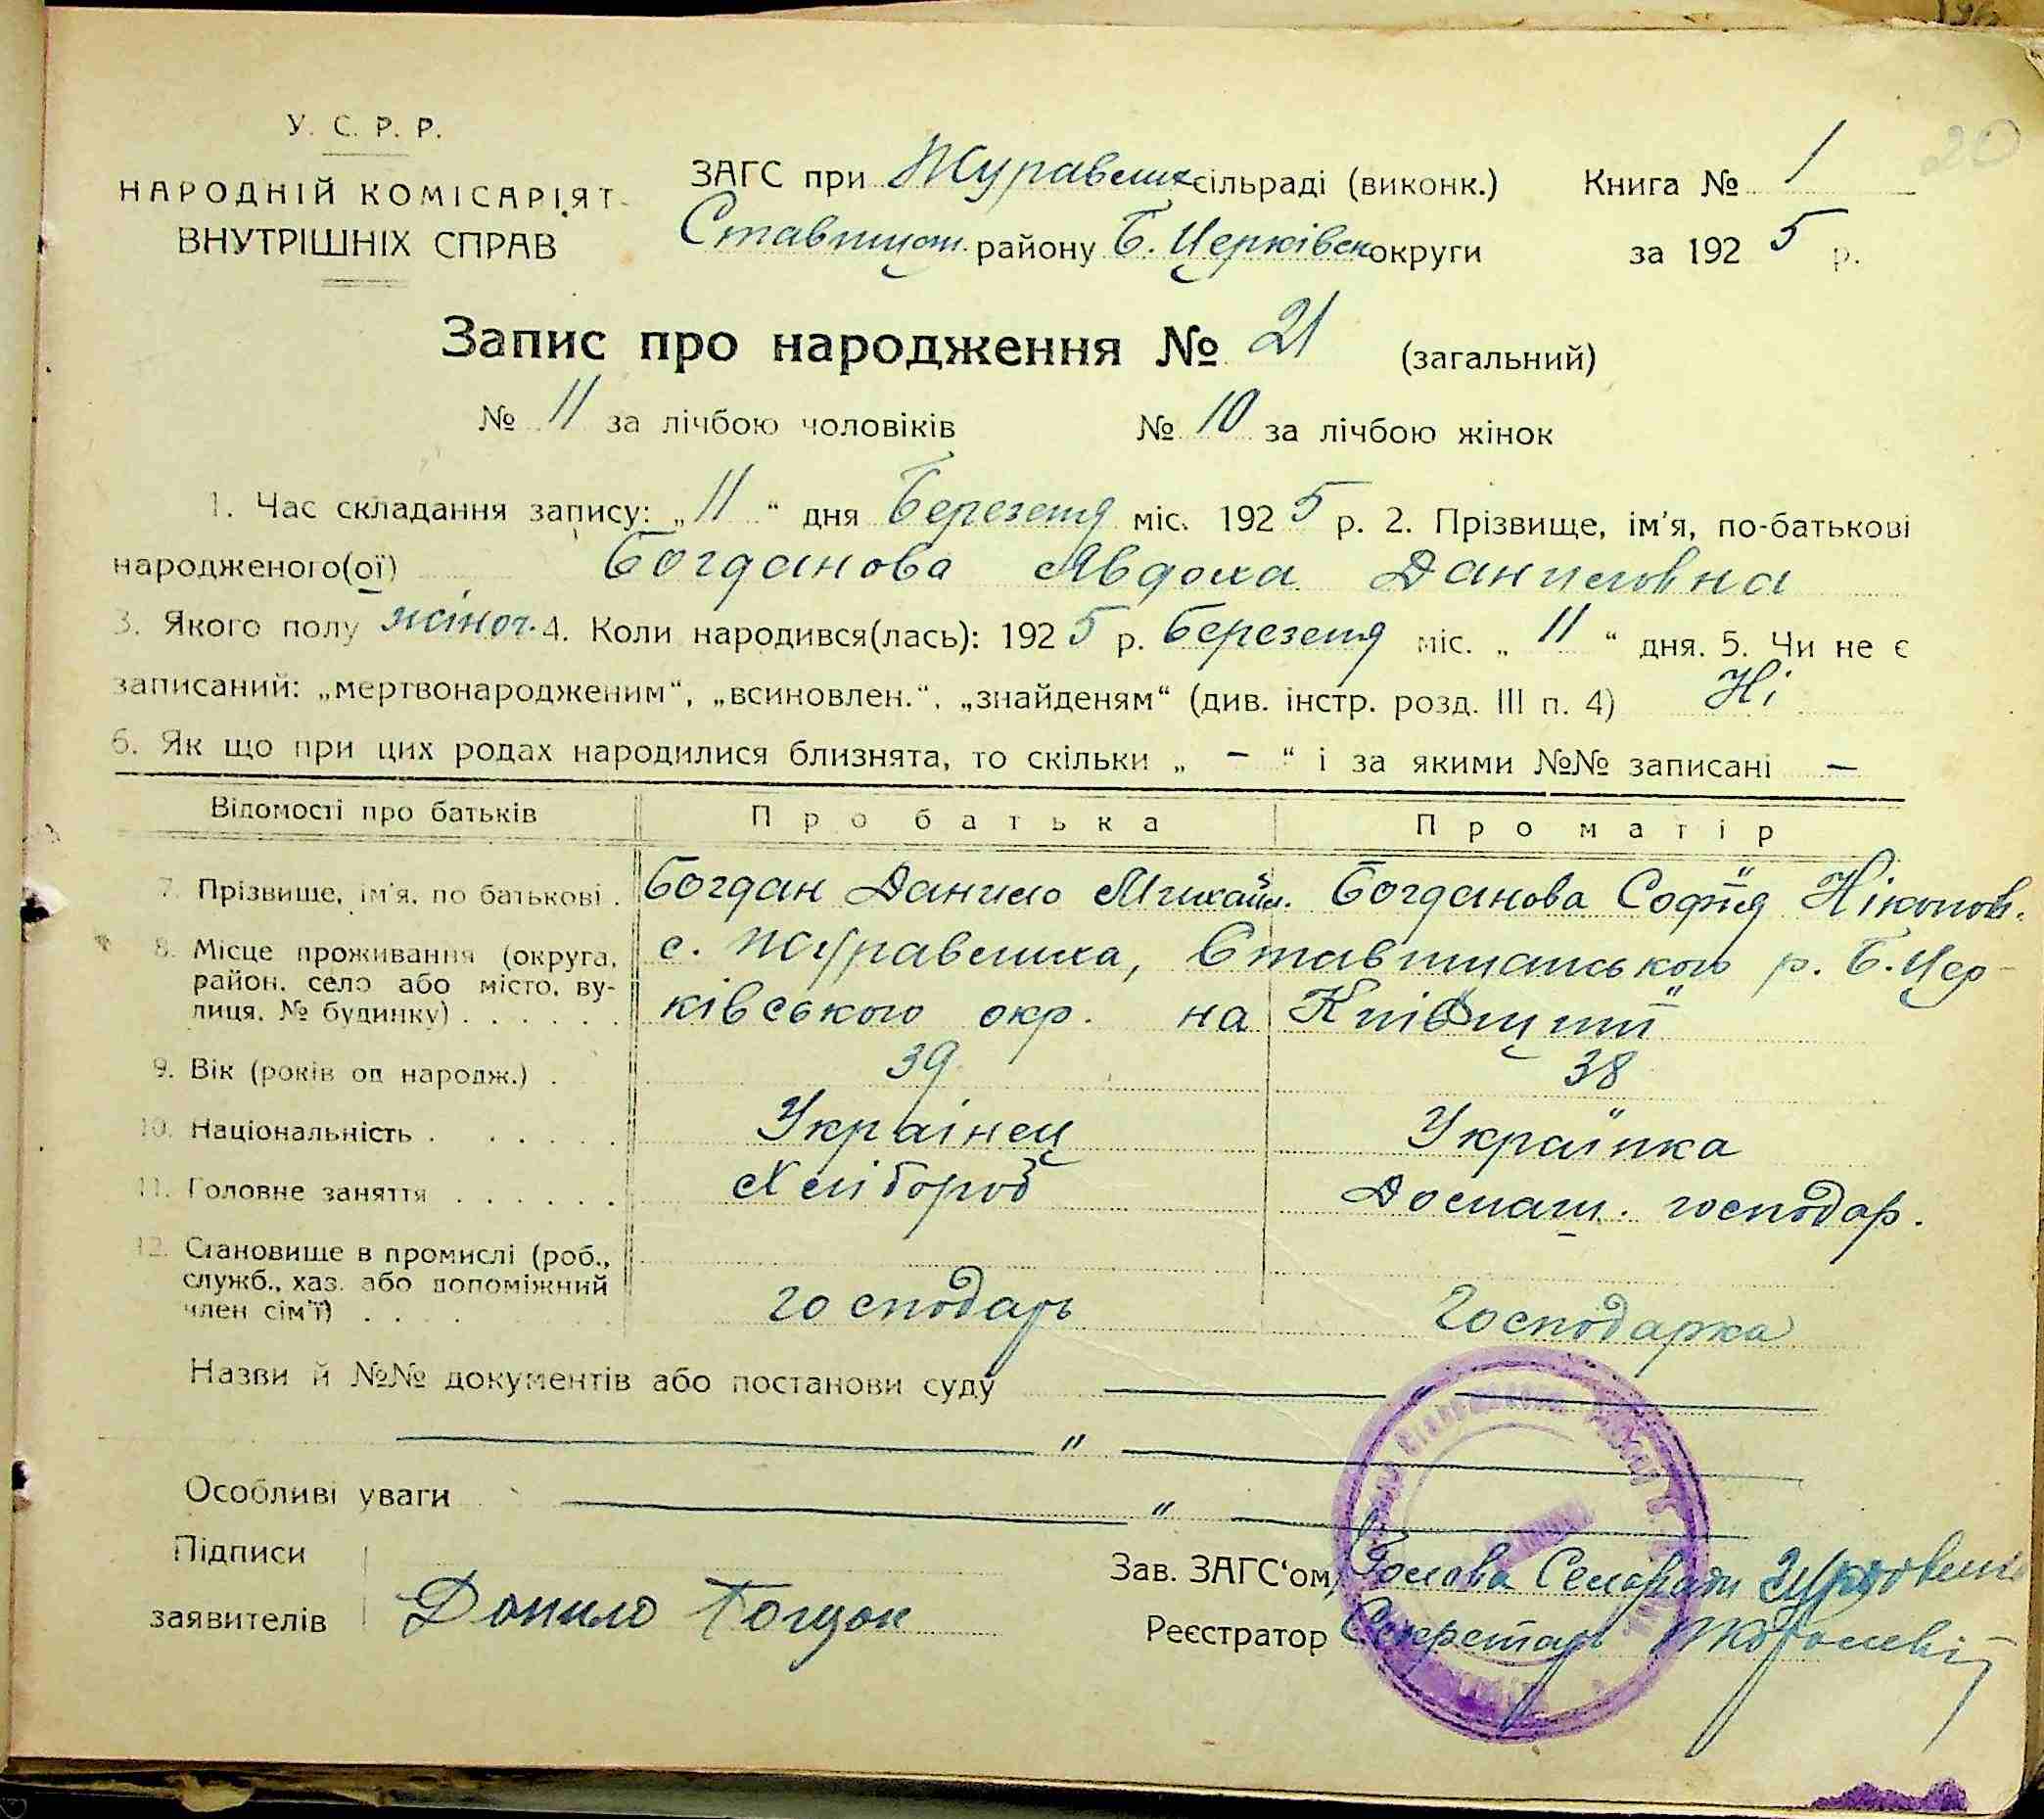 20
У. С. Р. Р.
НАРОДНІЙ КОМІСАРІЯТ
ВНУТРІШНІХ СПРАВ
ЗАГС при Журавлих сільраді (виконк.) Книга № 1
Ставищан. району Б. Церківськ округи за 1925 р.
Запис про народження № 21 (загальний)
№ 11 за лічбою чоловіків № 10 за лічбою жінок
1. Час складання запису: „11“ дня Березеня міс. 1925 р. 2. Прізвище, ім'я, по-батькові
народженого(ої) Богданова Явдоха Даниловна
3. Якого полу жіноч. 4. Коли народився(лась): 1925 р. Березеня міс. „11“ дня. 5. Чи не є
записаний: „мертвонародженим“, „всиновлен.“, „знайденям“ (див. інстр. розд. III п. 4) Ні
6. Як що при цих родах народилися близнята, то скільки „ — “ і за якими №№ записані —
Відомості про батьків Про батька Про матір
7. Прізвище, ім'я, по батькові . Богдан Данило Михайл. Богданова Софія Ніконов.
8. Місце проживання (округа, район, село або місто, вулиця, № будинку) . . . . . . с. Журавлиха, Ставищанського р. Б. Цер-
ківського окр. на Київщині
9. Вік (років од народж.) . 39 38
10. Національність . . . . . . Украінец Украінка
11. Головне заняття . . . . . . Хлібороб Домаш. господар.
12. Становище в промислі (роб., служб., хаз. або допоміжний член сім'ї) . . . . господарь Господарка
Назви й №№ документів або постанови суду — „ —
— „ —
Особливі уваги — „ —
Підписи
заявителів Данило Богдан
Зав. ЗАГС'ом Голова Сельради
Реєстратор Секретарь